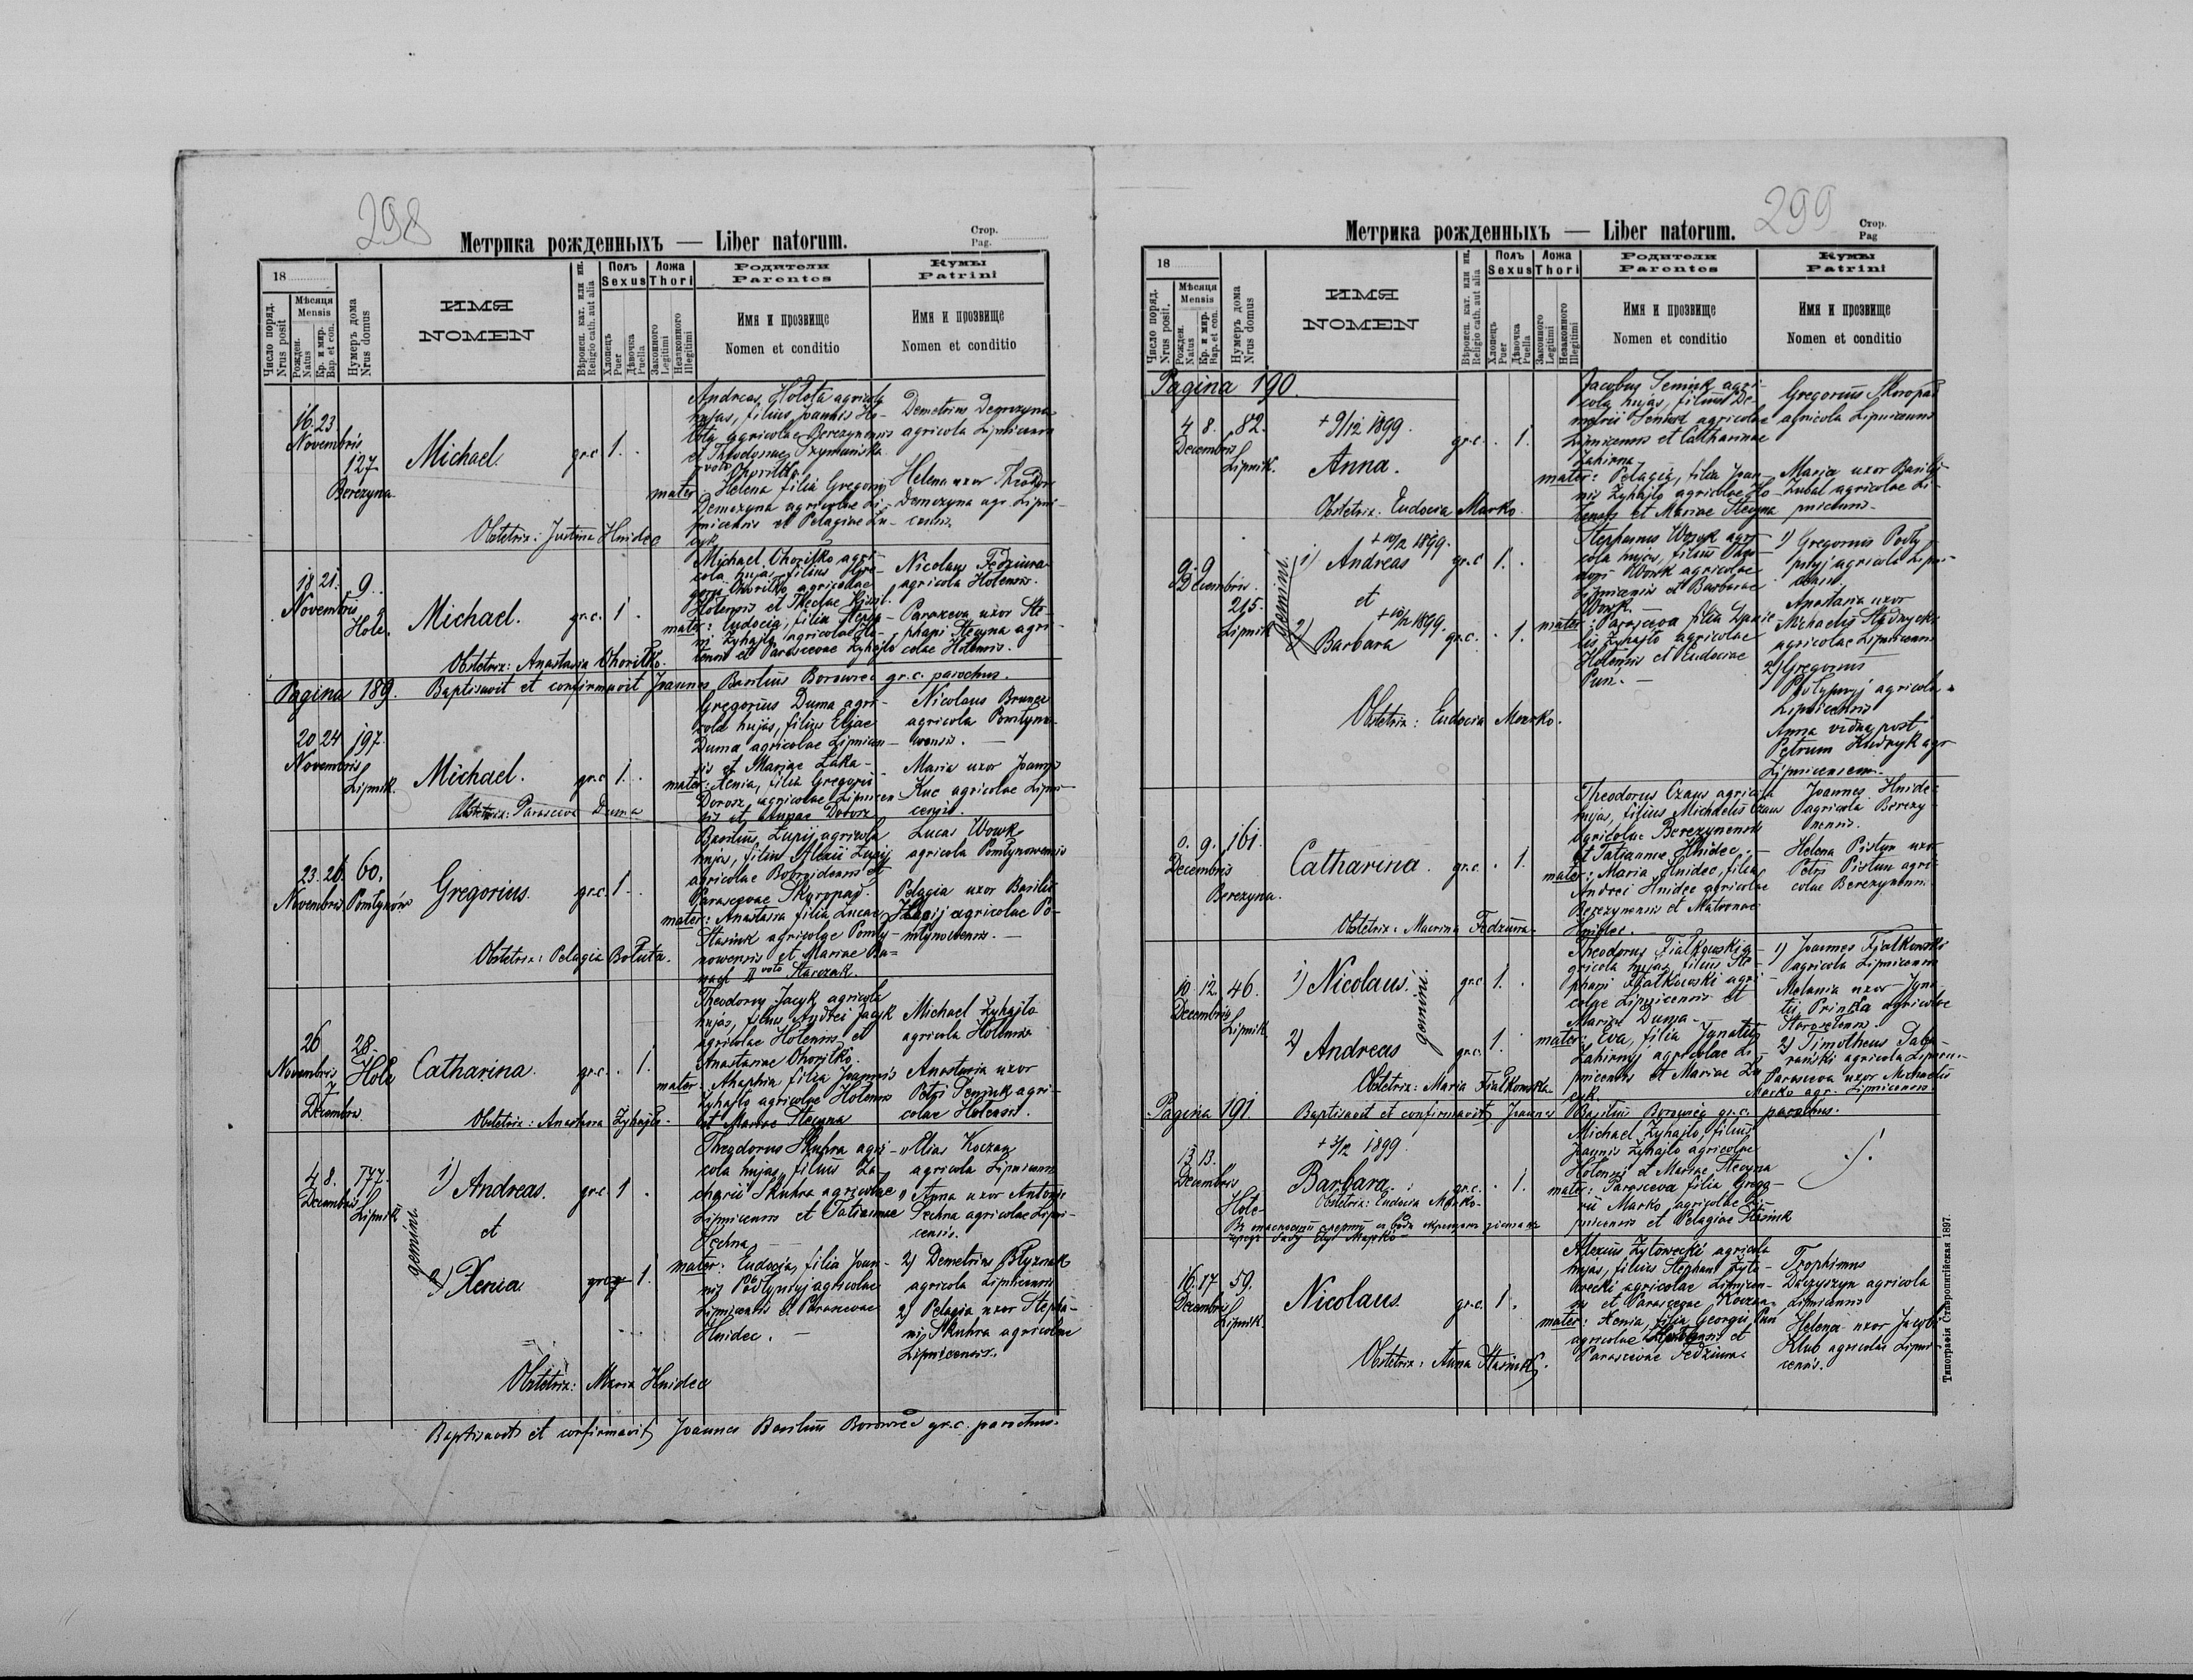 298
Метрика рожденныхъ — Liber natorum.
Стор.
Pag.
18
Число поряд.
Nrus posit
Мѣсяця
Mensis
Рожден.
Natus
Кр. и мир.
Bap. et con.
Нумеръ дома
Nrus domus
ИМЯ
NOMEN
Вѣроисп. кат. или ин.
Religio cath. aut alia
Полъ
Sexus
Хлопець
Puer
Дѣвочка
Puella
Ложа
Thori
Законного
Legitimi
Незаконного
Illegitimi
Родители
Parentes
Имя и прозвище
Nomen et conditio
Кумы
Patrini
Имя и прозвище
Nomen et conditio
16. 23.
Novembris
127
Berezyna
Michael.
gr.c. 1.
Andreas Hołota agricola
hujas, filius Joannis Ho-
łota agricolae Berezynensis
et Theodosiae Szymańska
voto Choriłko
mater: Helena filia Gregorij
Demezyna agricolae Li-
pnicensis et Pelagiae Zu-
cyk
Demetrius
agricola Lipnicensis
Helena uxor Theodori
Demezyna agr. Lipni-
censis.
Obstetrix: Justina Hnidec
18. 21. 9.
Novembris
Hole.
Michael.
gr.c. 1.
Michael Choriłko agri-
cola hujas, filius Gre-
gorii Choriłko agricolae
Holensis et Theclae
mater: Eudocia, filia
Zyhajło agricolae Ho-
lensis et Parascevae Zyhajło
Nicolaus Fedziura
agricola Holensis.
Parasceva uxor Ste-
phani Stecyna agri-
colae Holensis.
Obstetrix: Anastasia Choriłko.
Pagina 189. Baptisavit et confirmavit Joannes Basilius Borowiec gr.c. parochus.
20 24 197
Novembris
Lipnik.
Michael.
gr.c 1.
Gregorius Duma agri-
cola hujas, filius Eliae
Duma agricolae Lipnicen-
sis et Mariae Łaka-
mater: Xenia, filia Gregorii
Dorosz, agricolae Lipnicen
sis et Annae Dorosz
Nicolaus
agricola Pomłyno-
wensis.
Maria uxor Joannis
Kuc agricolae Lipni-
censis.
Obstetrix: Parasceva Duma
23. 26. 60.
Novembris Pomłynów
Gregorius.
gr.c. 1.
Basilius Łupij agricola
hujas, filius Alexii Łupij
agricolae et
Parascevae Skoropad.
mater: Anastasia filia Lucae
Stasiuk agricolae Pomły-
nowensis et Mariae Ba-
nach II voto Starczak.
Lucas Wowk
agricola Pomłynowensis
Pelagia uxor Basilii
Łupij agricolae Po-
młynowensis.
Obstetrix: Pelagia Bołuta.
26 28.
Novembris Hole
7
Decembris
Catharina.
gr.c. 1.
Theodorus Jacyk agricola
hujas, filius Andrei Jacyk
agricolae Holensis et
Anastasiae Choriłko.
mater: Ahaphia filia Joannis
Zyhajło agricolae Holensis
et Mariae Stecyna
Michael Zyhajło
agricola Holensis
Anastasia uxor
Petri Seniuk agri-
colae Holensis.
Obstetrix: Anastasia Zyhajło.
4. 8. 177.
Decembris
Lipnik
gemini.
1) Andreas.
gr.c 1
et
2) Xenia
gr.c 1.
Theodorus Skuhra agri-
cola hujas, filius Za-
charii Skuhra agricolae
Lipnicensis et Tatiannae
Hechna
mater: Eudocia, filia Joan-
nis agricolae
Lipnicensis et Parascevae
Hnidec.
1) Elias Koczan
agricola Lipnicensis
1) Anna uxor Antonii
Sechna agricolae Lipni-
censis.
2) Demetrius Błyzniak
agricola Lipnicensis
2) Pelagia uxor Stepha-
ni Skuhra agricolae
Lipnicensis.
Obstetrix: Maria Hnidec
Baptisavit et confirmavit Joannes Basilius Borowiec gr.c. parochus.
299
Метрика рожденныхъ — Liber natorum.
Стор.
Pag
18
Число поряд.
Nrus posit.
Мѣсяця
Mensis
Рожден.
Natus
Кр. и мир.
Bap. et con.
Нумеръ дома
Nrus domus
ИМЯ
NOMEN
Вѣроисп. кат. или ин.
Religio cath. aut alia
Полъ
Sexus
Хлопець
Puer
Дѣвочка
Puella
Ложа
Thori
Законного
Legitimi
Незаконного
Illegitimi
Родители
Parentes
Имя и прозвище
Nomen et conditio
Кумы
Patrini
Имя и прозвище
Nomen et conditio
Pagina 190.
4 8. 82.
Decembris
Lipnik.
+ 9/12 1899.
Anna.
gr.c. 1.
Jacobus Seniuk agri-
cola hujas, filius De-
metrii Seniuk agricolae
Lipnicensis et Catharinae
Zahirna
mater: Pelagia, filia Joan-
nis Zyhajło agricolae Ho-
lensis et Mariae Stecyna
Gregorius Skoropad
agricola Lipnicensis
Maria uxor Basilii
Zubal agricolae Li-
pnicensis.
Obstetrix: Eudocia Marko
9. 9
Decembris.
215.
Lipnik
gemini.
+ 10/12 1899.
1) Andreas
gr.c 1.
et
+ 10/12 1899.
2) Barbara
gr.c. 1.
Stephanus Wowk agri-
cola hujas, filius Theo-
dori Wowk agricolae
Lipnicensis et Barbarae
Wowk.
mater: Parasceva filia Danie-
lis Zyhajło agricolae
Holensis et Eudociae
Pun.
1) Gregorius
agricola Lipni-
censis.
Anastasia uxor
Michaelis
agricolae Lipnicensis
2) Gregorius
agricola
Lipnicensis
Anna vidua post
Petrum Kudryk agr
Lipnicensem.
Obstetrix: Eudocia Marko.
8. 9. 161.
Decembris
Berezyna.
Catharina.
gr.c. 1.
Theodorus Czaus agricola
hujas, filius Michaelis Czaus
agricolae Berezynensis
et Tatiannae Hnidec.
mater: Maria Hnidec, filia
Andrei Hnidec agricolae
Berezynensis et Matronae
Hnidec.
Joannes Hnidec
agricola Berezy-
nensis.
Helena Pistun uxor
Petri Pistun agri-
colae Berezynensis
Obstetrix: Macrina Fedziura.
10. 12. 46.
Decembris
Lipnik
gemini
1) Nicolaus.
gr.c 1.
2) Andreas
gr.c. 1.
Theodorus Fiałkowski a-
gricola hujas, filius Ste-
phani Fiałkowski agri-
colae Lipnicensis et
Mariae Duma.
mater: Eva, filia Ignatii
Zahirnyj agricolae Li-
pnicensis et Mariae Zu-
cyk.
1) Joannes Fiałkowski
agricola Lipnicensis
Melania uxor Igna-
tii agricolae
2) Timotheus
agricola Lipnicen-
Parasceva uxor Michaelis
Marko agr. Lipnicensis.
Obstetrix: Maria Fiałkowska
Pagina 191. Baptisavit et confirmavit Joannes Basilius Borowiec gr.c. parochus.
13. 13.
Decembris
Hole
1899.
Barbara.
gr.c. 1.
Michael Zyhajło, filius
Joannis Zyhajło agricolae
Holensis et Mariae Stecyna
mater: Parasceva filia Grego-
rii Marko agricolae Li-
pnicensis et Pelagiae Stasiuk
Obstetrix: Eudocia Marko.
16. 17 59.
Decembris
Lipnik.
Nicolaus.
gr.c. 1.
Alexius Żytowecki agricola
hujas, filius Stephani Żyto-
wecki agricolae Lipnicen-
sis et Parascevae Koczan
mater: Xenia, filia Georgii Pun
agricolae Holensis et
Parascevae Fedziura.
Trophimus
agricola
Lipnicensis
Helena uxor Jacobi
Klub agricolae Lipni-
censis.
Obstetrix: Anna Stasiuk.
Типографія Ставропигійская 1897.